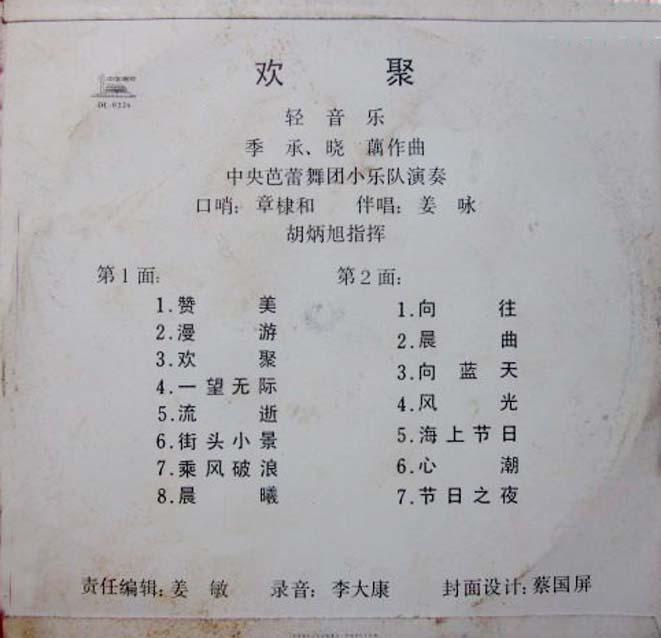 欢聚
中国唱片
DL-0226
轻音乐
季承、晓藕作曲
中央芭蕾舞团小乐队演奏
口哨:章棣和 伴唱:姜咏
胡炳旭指挥
第1面:
1.赞美
2.漫游
3.欢聚
4.一望无际
5.流逝
6.街头小景
7.乘风破浪
8.晨曦
第2面:
1.向往
2.晨曲
3.向蓝天
4.风光
5.海上节日
6.心潮
7.节日之夜
责任编辑:姜敏 录音:李大康 封面设计:蔡国屏